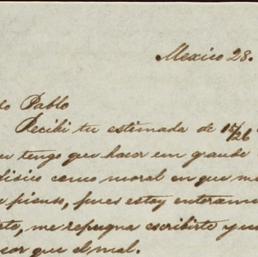 Mexico 28.
do Pablo
Recibi tu estimada de 15/26
tengo que hacer em grande
disico como moral en que me
piensas, pues estoy enteram
to, me repugna escribirte y
que el mal.